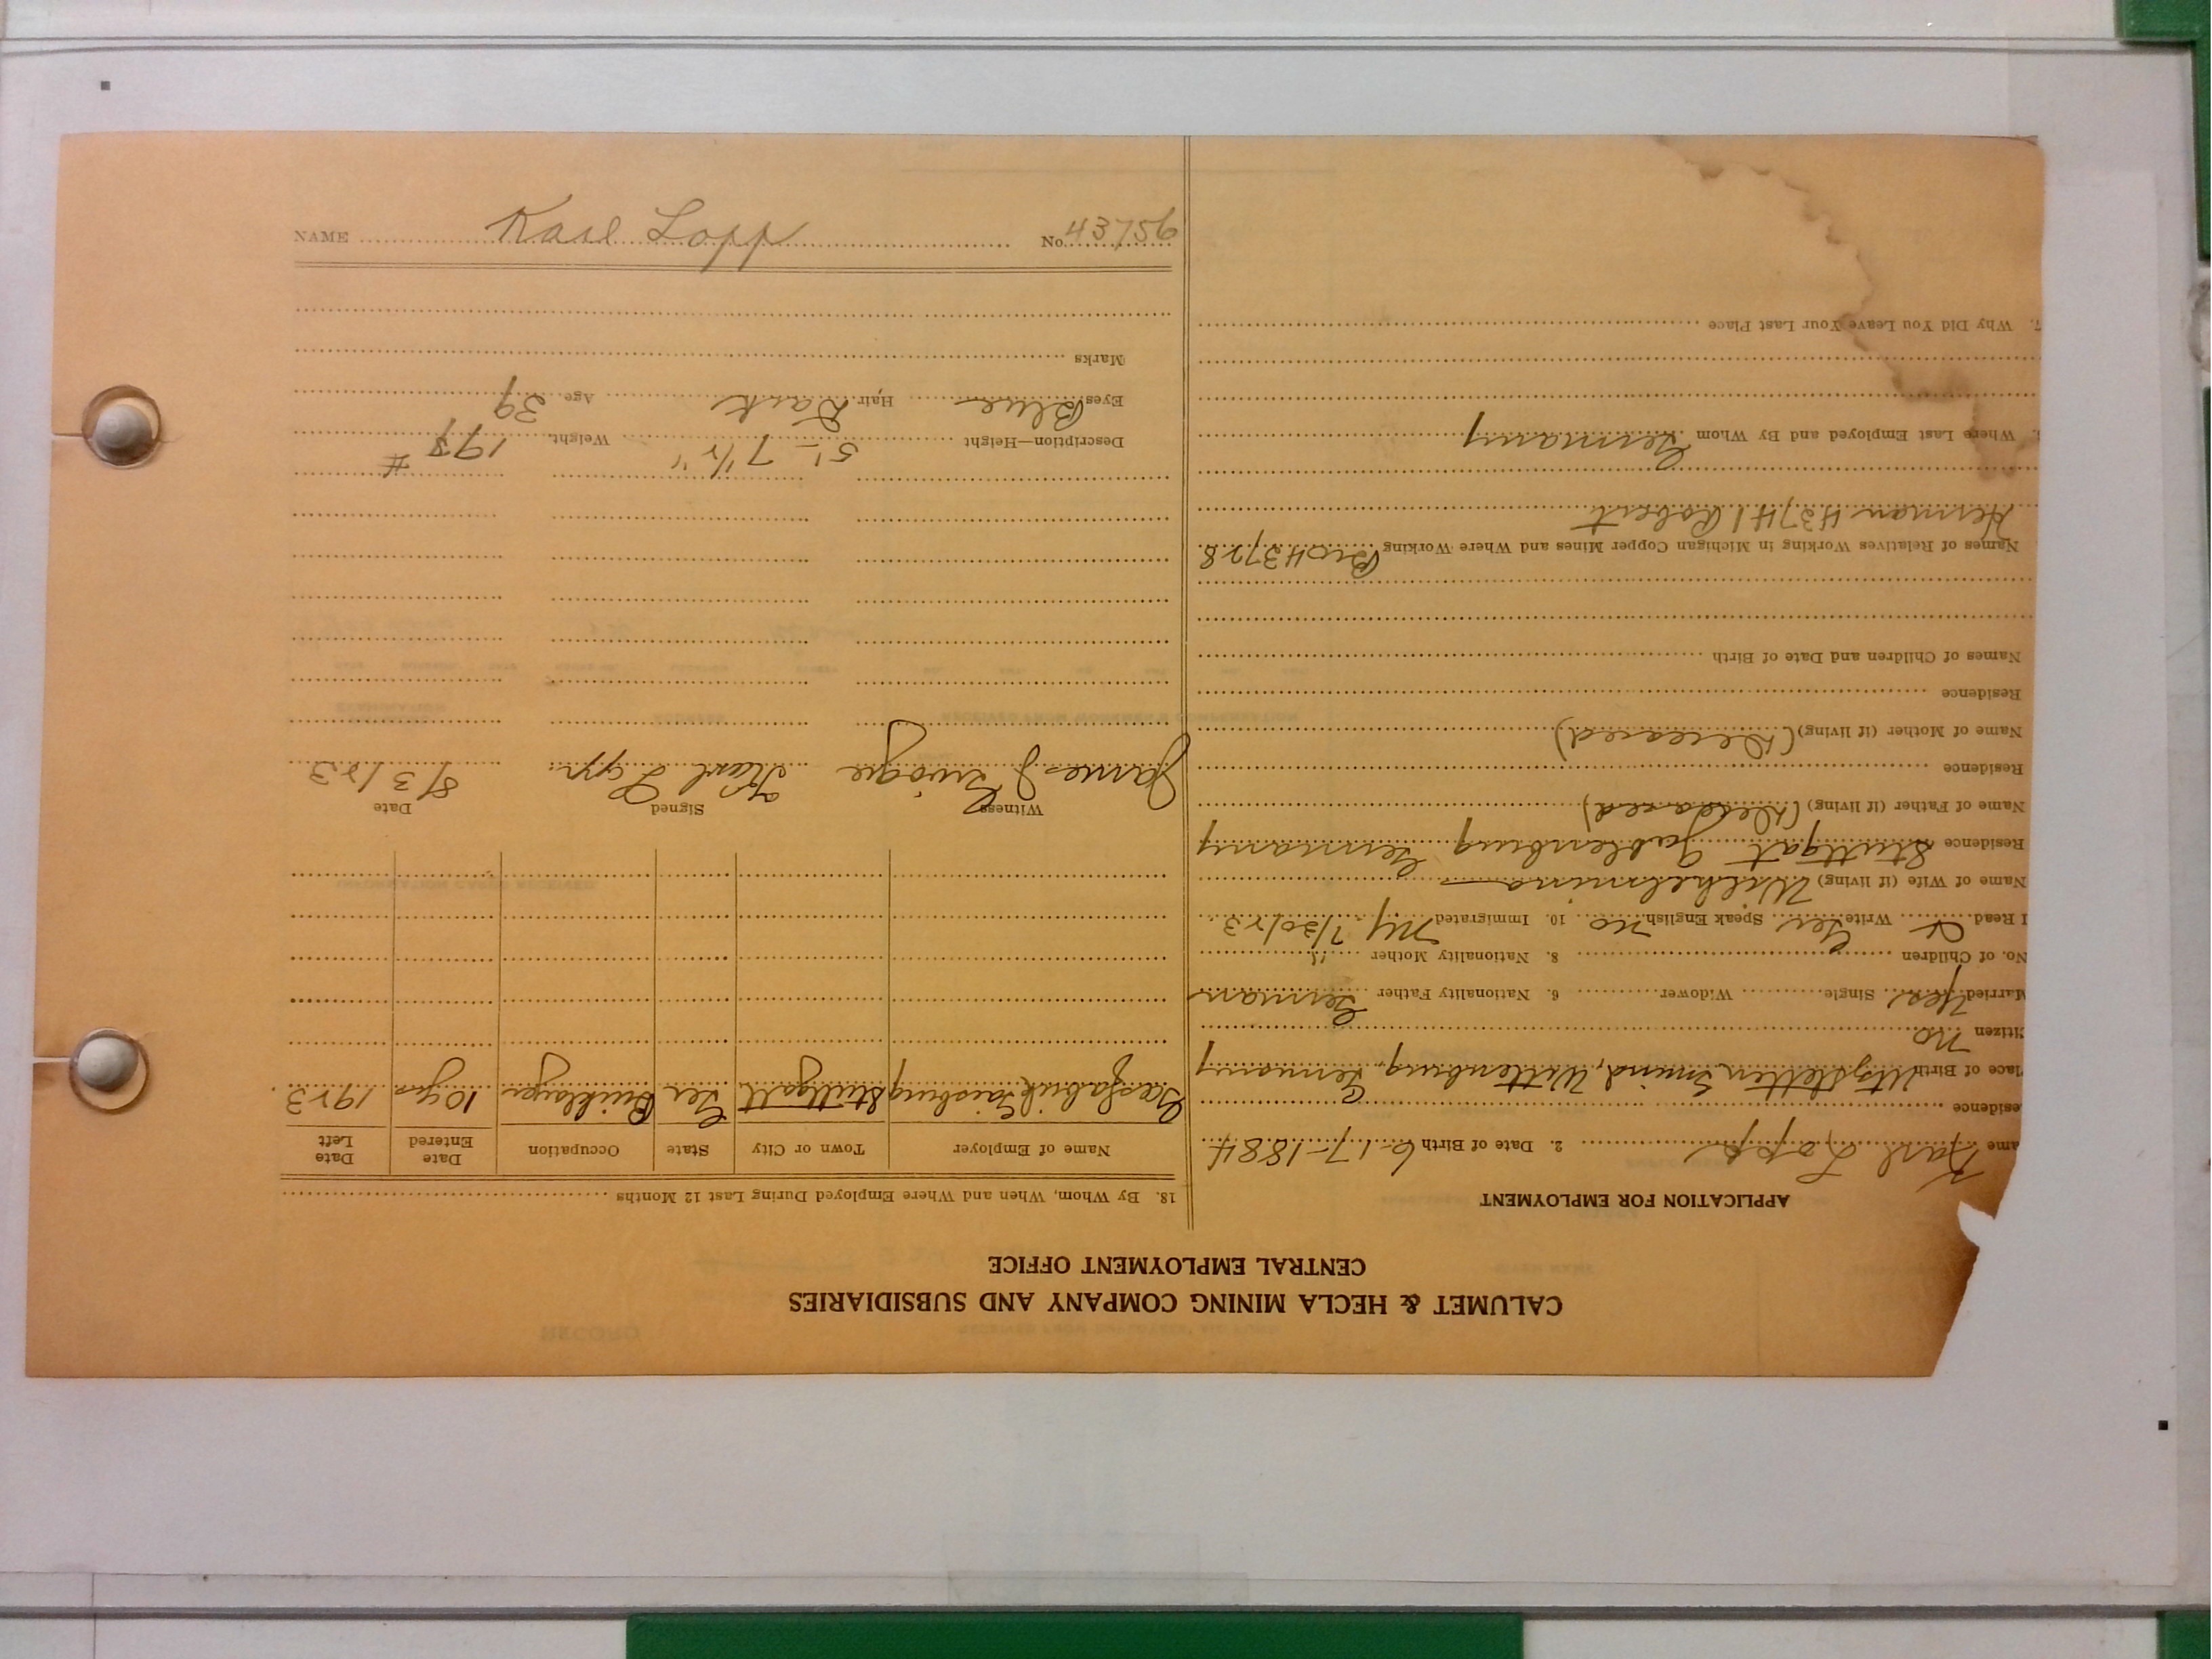 CALUMET & HECLA MINING COMPANY AND SUBSIDIARIES
CENTRAL EMPLOYMENT OFFICE
APPLICATION FOR EMPLOYMENT
ame Karl Lopp 2. Date of Birth 6-17-1884
esidence
lace of Birth Utzstetten, Gmünd, Wittenburg, Germany
itizen no
Married Yes Single Widower 6. Nationality Father German
No. of Children 8. Nationality Mother "
I Read Write Ger Speak English no 10. Immigrated Ny 7/30/23
Name of Wife (if living) Wilhelmina
Residence Stuttgat Gablenburg Germany
Name of Father (if living) (Deceased)
Residence
Name of Mother (if living) (Deceased)
Residence
Names of Children and Date of Birth
Names of Relatives Working in Michigan Copper Mines and Where Working Bro 43728
Herman 43741 Robert
Where Last Employed and By Whom Germany
7. Why Did You Leave Your Last Place
18. By Whom, When and Where Employed During Last 12 Months
Name of Employer Town or City State Occupation Date Entered Date Left
Gasfabrik Gaisburg Stuttgatt Ger Bricklayer 10 yrs 1923
Witness Signed Date
James Karl Lopp 8/3/23
Description—Height 5'-7 1/2" Weight 193 #
Eyes Blue Hair Dark Age 39
Marks
NAME Karl Lopp No. 43756